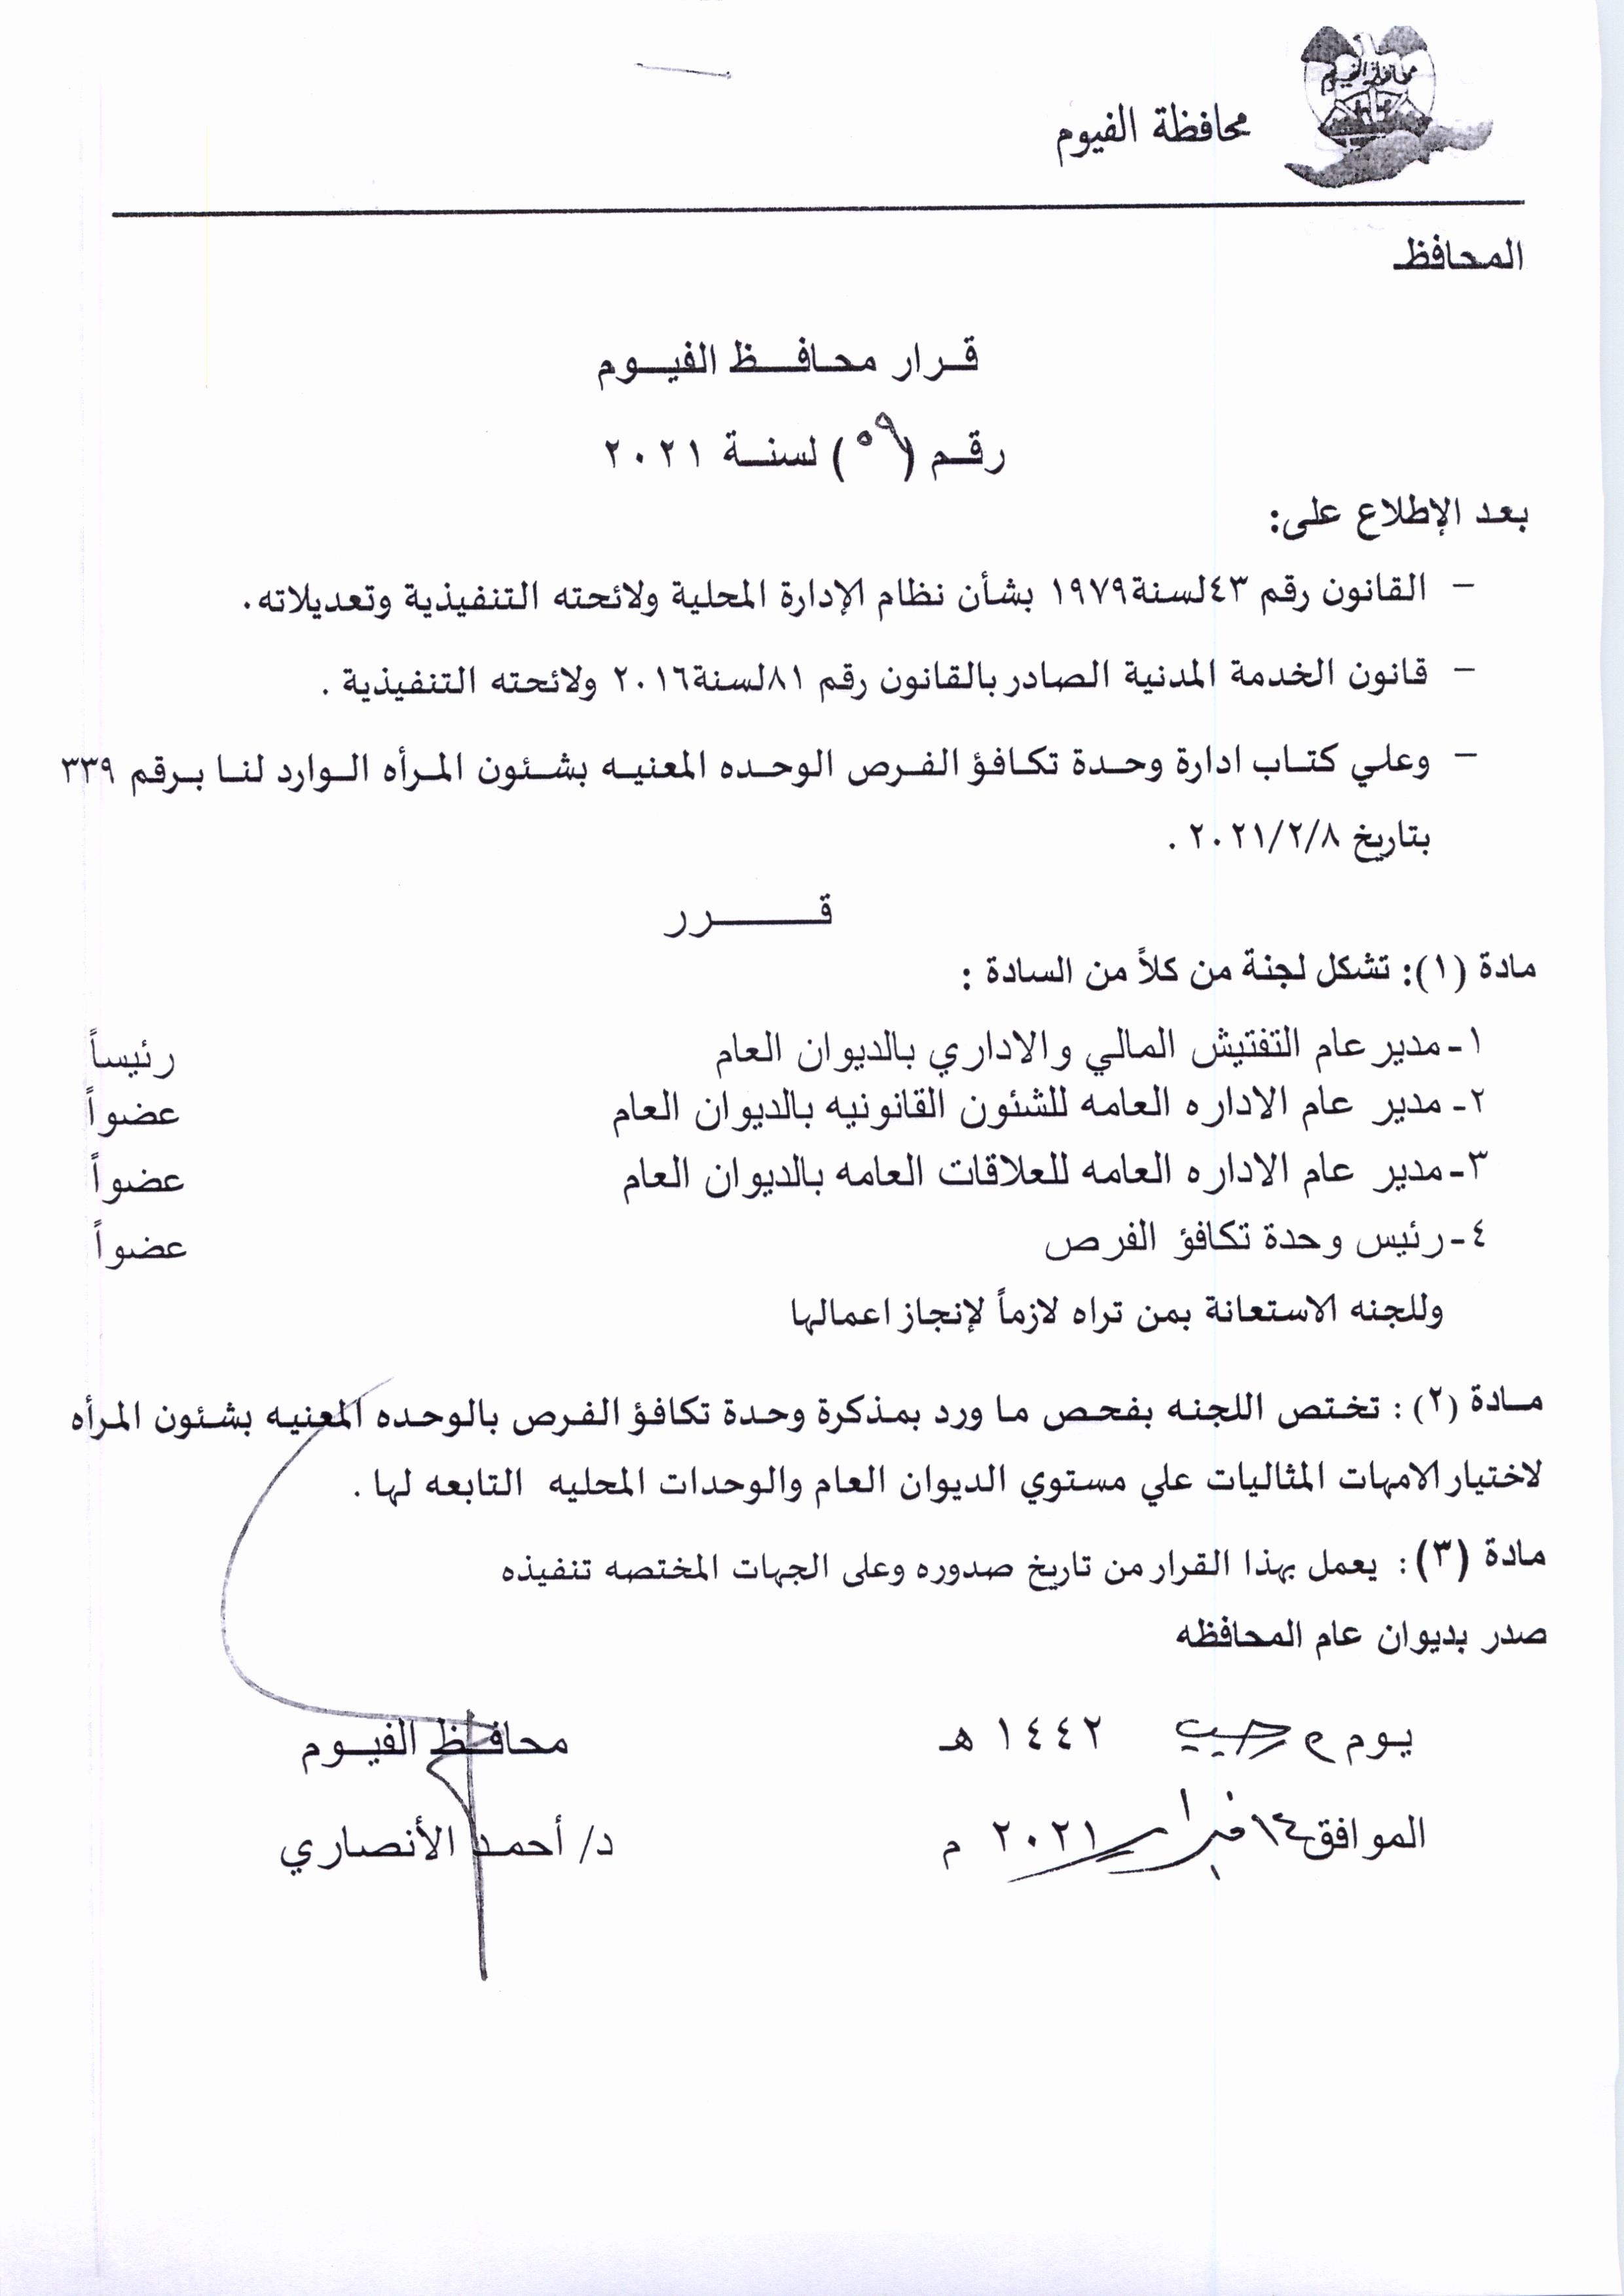 محافظة الفيوم
محافظة الفيوم
المحافظ
قرار محافظ الفيوم
رقم (٥٩) لسنة ٢٠٢١
بعد الإطلاع على:
- القانون رقم ٤٣لسنة١٩٧٩ بشأن نظام الإدارة المحلية ولائحته التنفيذية وتعديلاته.
- قانون الخدمة المدنية الصادر بالقانون رقم ٨١لسنة٢٠١٦ ولائحته التنفيذية .
- وعلي كتاب ادارة وحدة تكافؤ الفرص الوحده المعنيه بشئون المرأه الوارد لنا برقم ٣٣٩
بتاريخ ٢٠٢١/٢/٨ .
قرر
مادة (١): تشكل لجنة من كلاً من السادة :
١- مدير عام التفتيش المالي والاداري بالديوان العام رئيساً
٢- مدير عام الاداره العامه للشئون القانونيه بالديوان العام عضواً
٣- مدير عام الاداره العامه للعلاقات العامه بالديوان العام عضواً
٤- رئيس وحدة تكافؤ الفرص عضواً
وللجنه الاستعانة بمن تراه لازماً لإنجاز اعمالها
مادة (٢) : تختص اللجنه بفحص ما ورد بمذكرة وحدة تكافؤ الفرص بالوحده المعنيه بشئون المرأه
لاختيار الامهات المثاليات علي مستوي الديوان العام والوحدات المحليه التابعه لها .
مادة (٣) : يعمل بهذا القرار من تاريخ صدوره وعلى الجهات المختصه تنفيذه
صدر بديوان عام المحافظه
يوم رجب ١٤٤٢ هـ
محافظ الفيوم
الموافق ١٤ فبراير ٢٠٢١ م
د/ أحمد الأنصاري